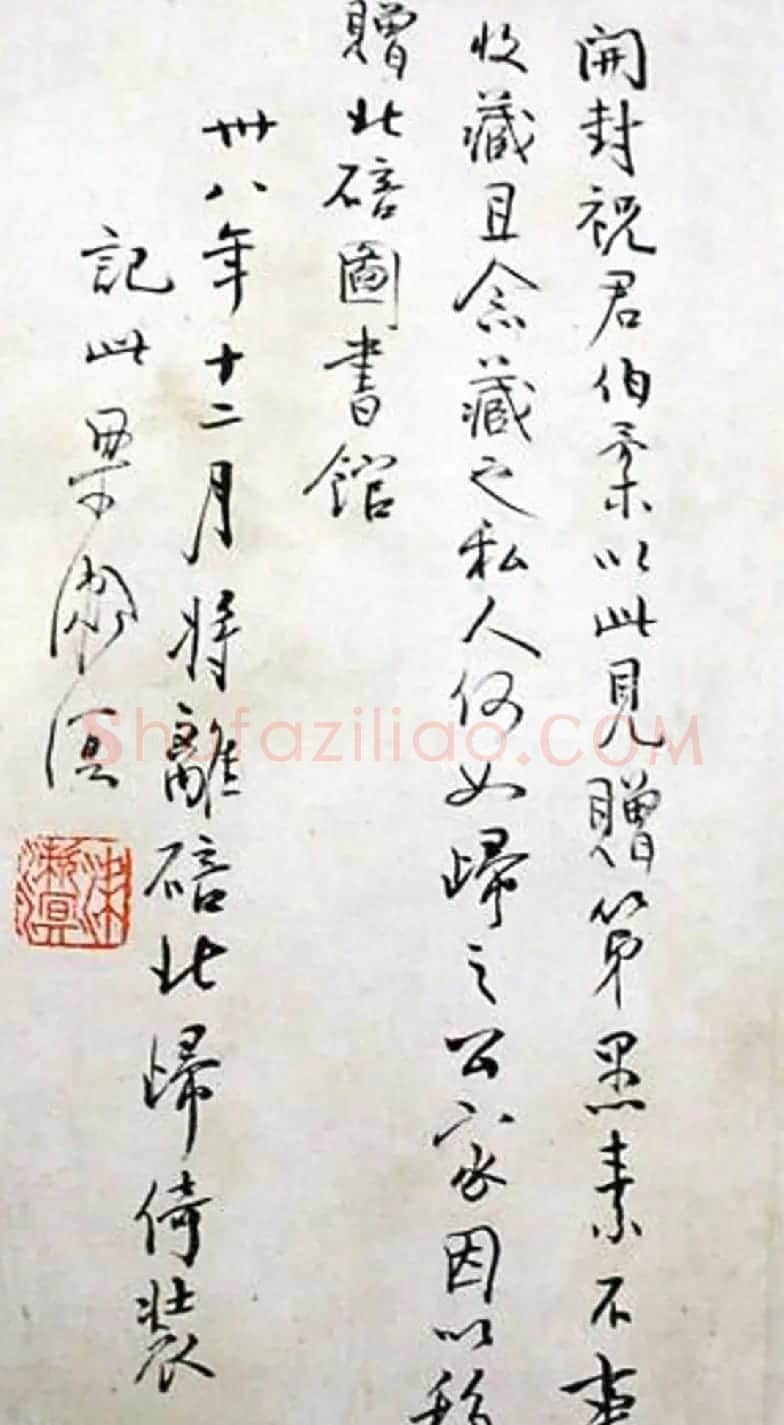 開封祝君伯柔以此見贈第黑素不事
收藏且念藏之私人何如歸之公家因以移
贈北碚圖書館
卅八年十二月將離碚北歸倚裝
記此 梁漱溟
梁漱溟
Shufaziliao.COM